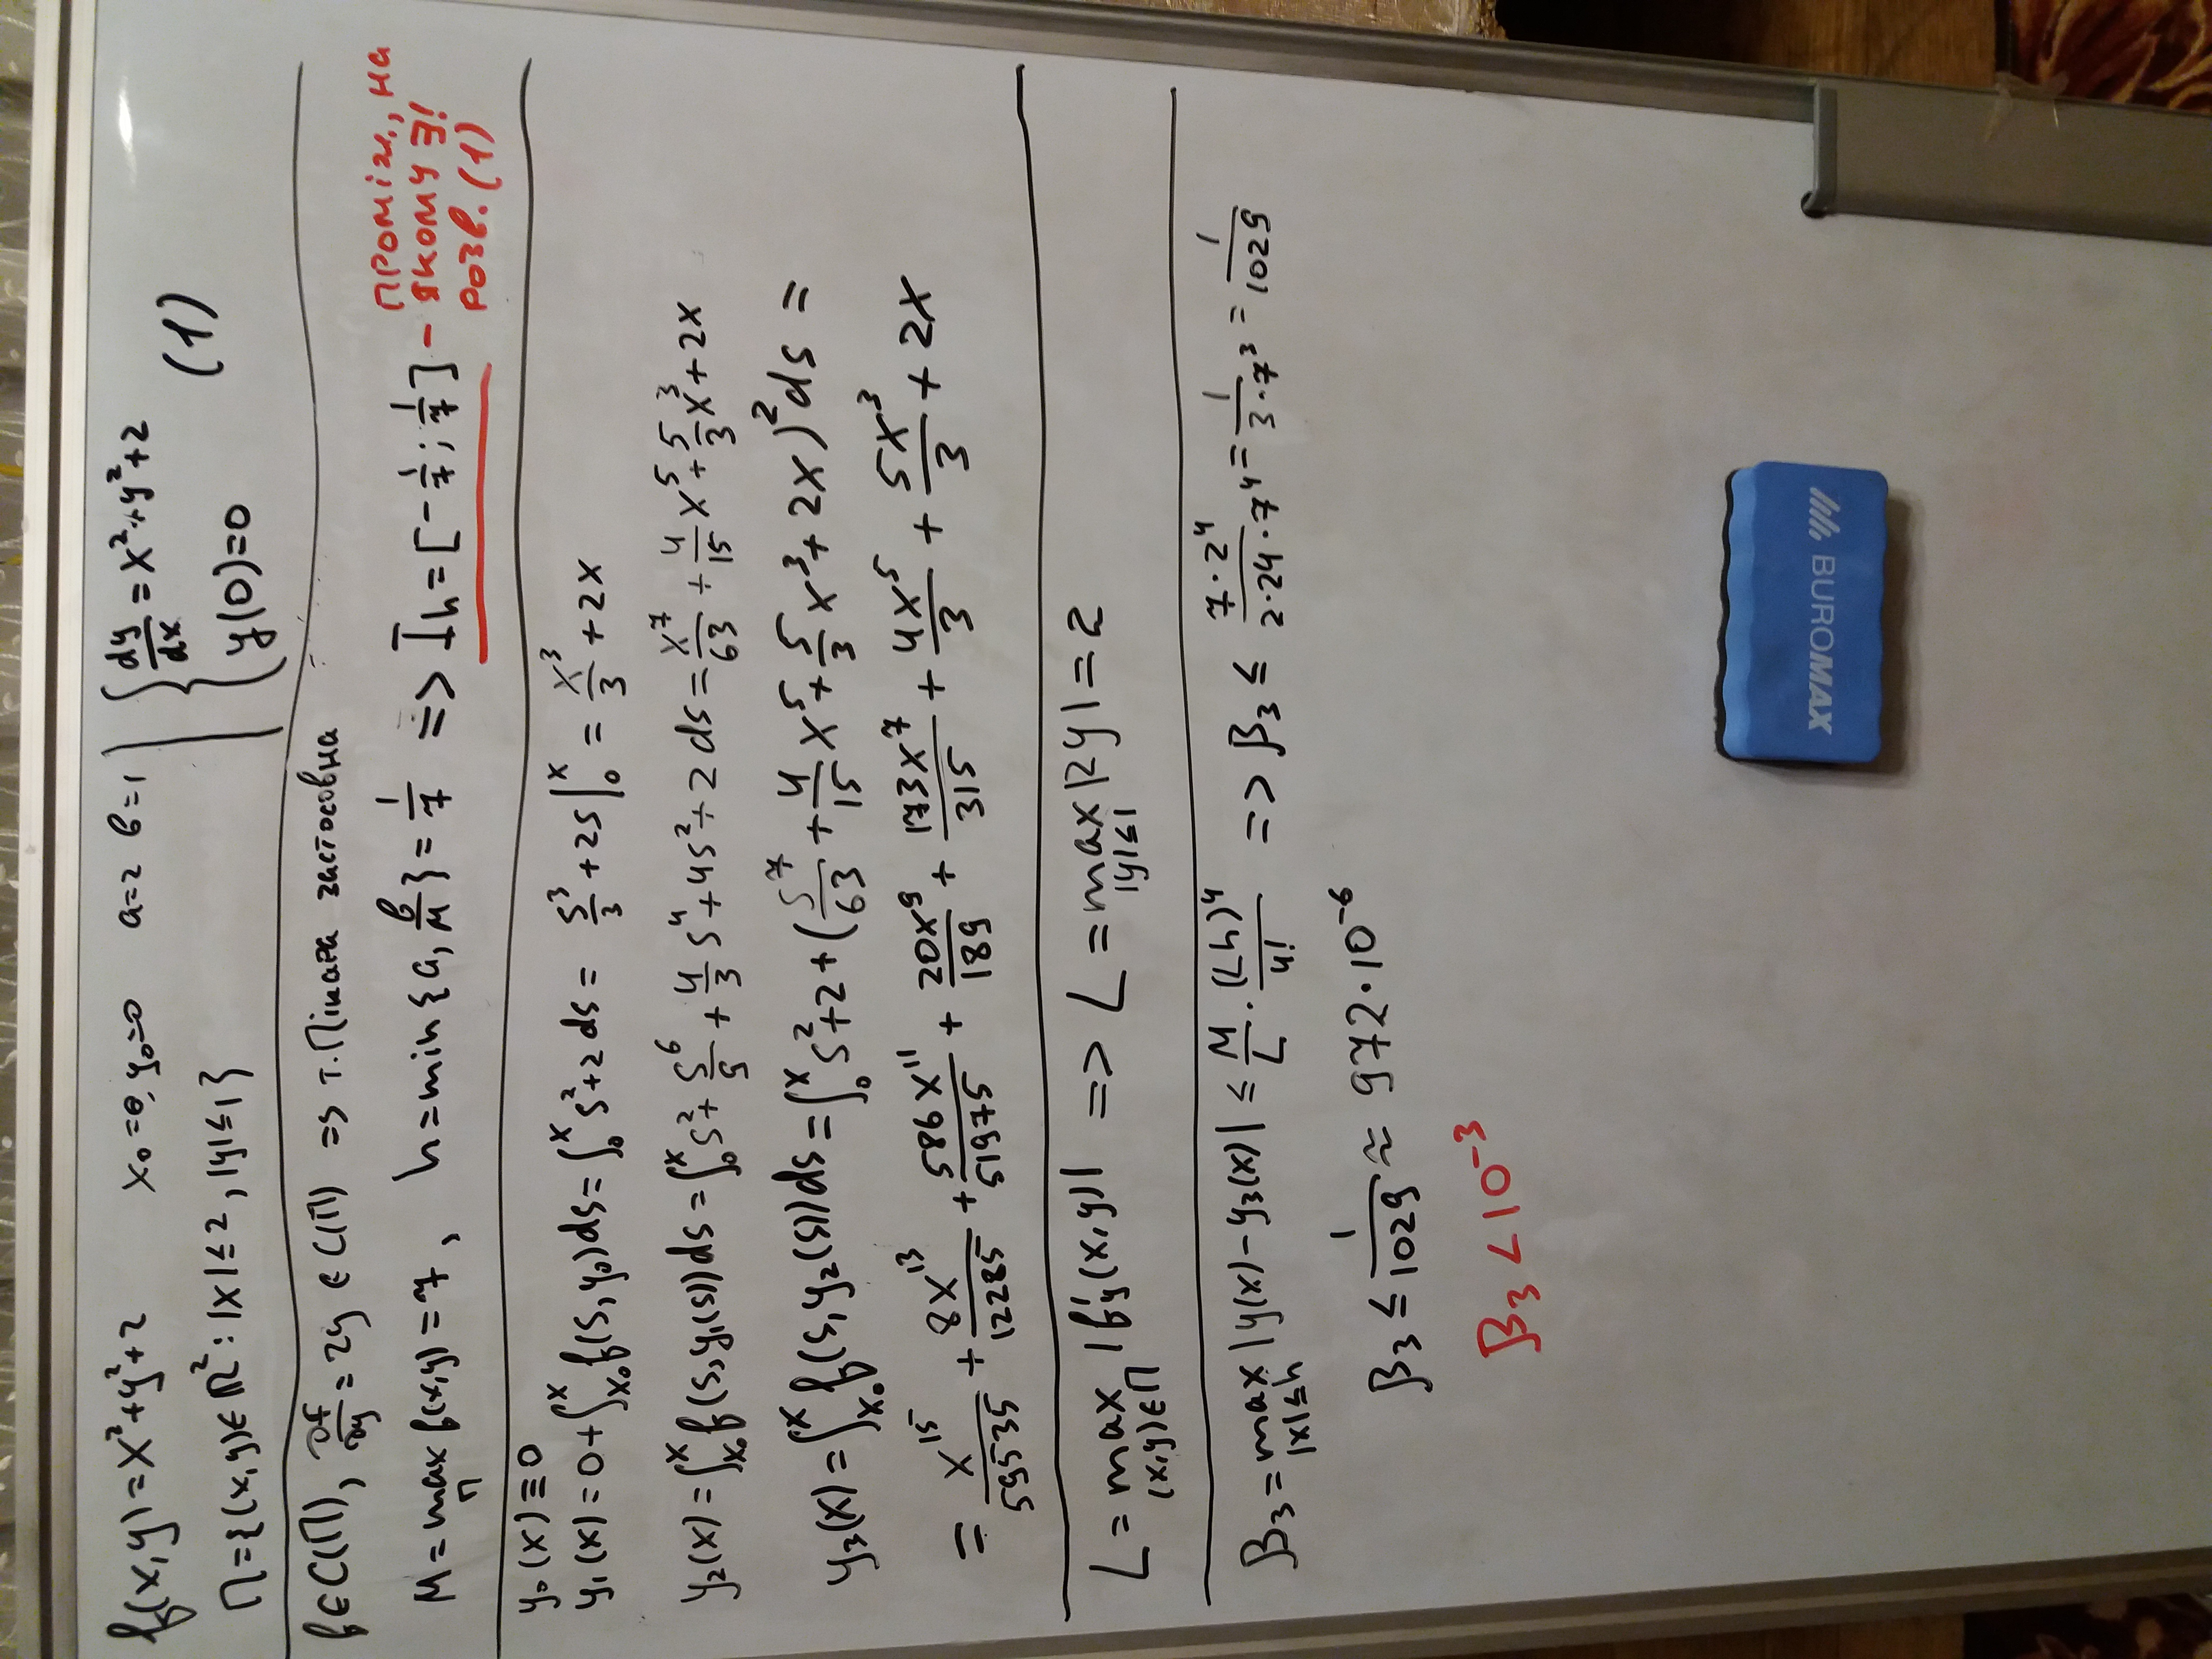 f(x,y)=x²+y²+2 x₀=0, y₀=0 a=2 b=1
Π={(x,y)∈ℝ²: |x|≤2, |y|≤1}
{ dy/dx = x²+y²+2
y(0)=0 (1)
f∈C(Π), ∂f/∂y = 2y ∈ C(Π) => т. Пікара застосовна
M = max_Π f(x,y) = 7, h = min{a, b/M} = 1/7 => I_h = [-1/7; 1/7] -
проміж., на
якому ∃!
розв. (1)
y₀(x) ≡ 0
y₁(x) = 0 + ∫_{x₀}^{x} f(s, y₀)ds = ∫_0^x s²+2 ds = s³/3 + 2s |_0^x = x³/3 + 2x
y₂(x) = ∫_{x₀}^{x} f(s, y₁(s))ds = ∫_0^x s² + s⁶/9 + 4/3 s⁴ + 4s² + 2 ds = x⁷/63 + 4/15 x⁵ + 5/3 x³ + 2x
y₃(x) = ∫_{x₀}^{x} f(s, y₂(s))ds = ∫_0^x s²+2 + (s⁷/63 + 4/15 x⁵ + 5/3 x³ + 2x)² ds =
= x¹⁵/59535 + 8x¹³/12285 + 586x¹¹/51975 + 20x⁹/189 + 173x⁷/315 + 4x⁵/3 + 5x³/3 + 2x
L = max_{(x,y)∈Π} |f'_y(x,y)| => L = max_{|y|≤1} |2y| = 2
β₃ = max_{|x|≤h} |y(x) - y₃(x)| ≤ M/L · (Lh)⁴/4! => β₃ ≤ 7·2⁴/(2·24·7⁴) = 1/(3·7³) = 1/1029
β₃ ≤ 1/1029 ≈ 972·10⁻⁶
β₃ < 10⁻³
BUROMAX